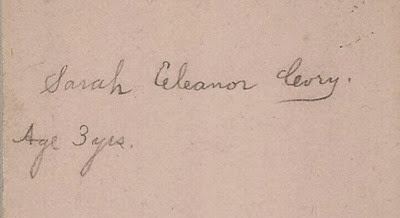 Sarah Eleanor Cory.
Age 3 yrs.